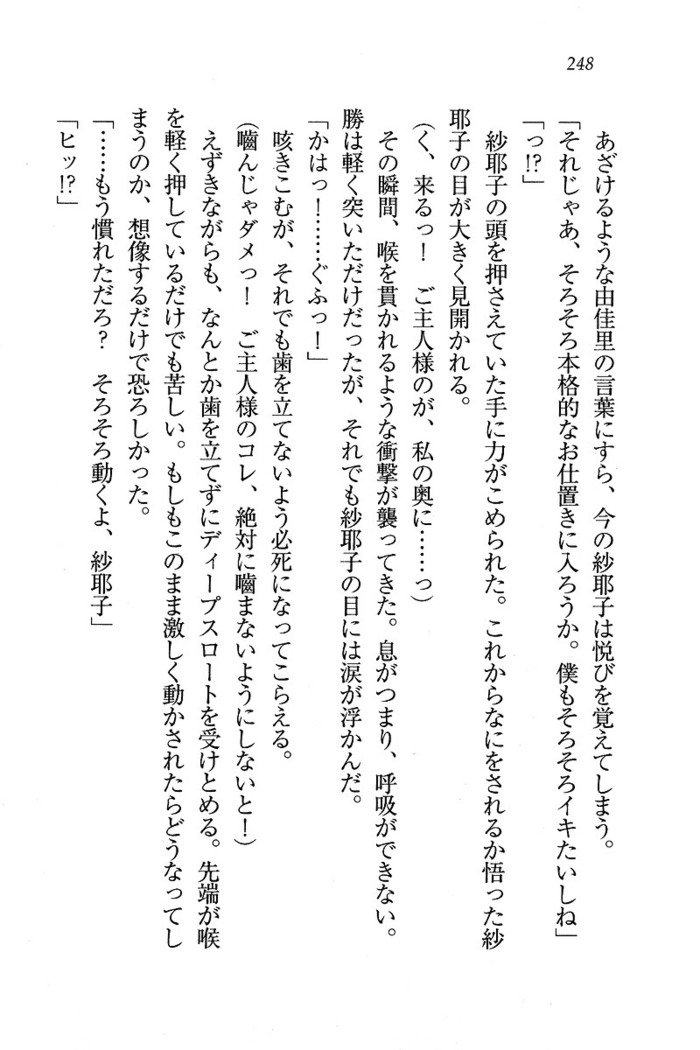 248
あざけるような由佳里の言葉にすら、今の紗耶子は悦びを覚えてしまう。
「それじゃあ、そろそろ本格的なお仕置きに入ろうか。僕もそろそろイキたいしね」
「っ!?」
紗耶子の頭を押さえていた手に力がこめられた。これからなにをされるか悟った紗
耶子の目が大きく見開かれる。
(く、来るっ!　ご主人様のが、私の奥に……っ)
その瞬間、喉を貫かれるような衝撃が襲ってきた。息がつまり、呼吸ができない。
勝は軽く突いただけだったが、それでも紗耶子の目には涙が浮かんだ。
「かはっ!……ぐふっ!」
咳きこむが、それでも歯を立てないよう必死になってこらえる。
(嚙んじゃダメっ!　ご主人様のコレ、絶対に嚙まないようにしないと!)
えずきながらも、なんとか歯を立てずにディープスロートを受けとめる。先端が喉
を軽く押しているだけでも苦しい。もしもこのまま激しく動かされたらどうなってし
まうのか、想像するだけで恐ろしかった。
「……もう慣れただろ?　そろそろ動くよ、紗耶子」
「ヒッ!?」